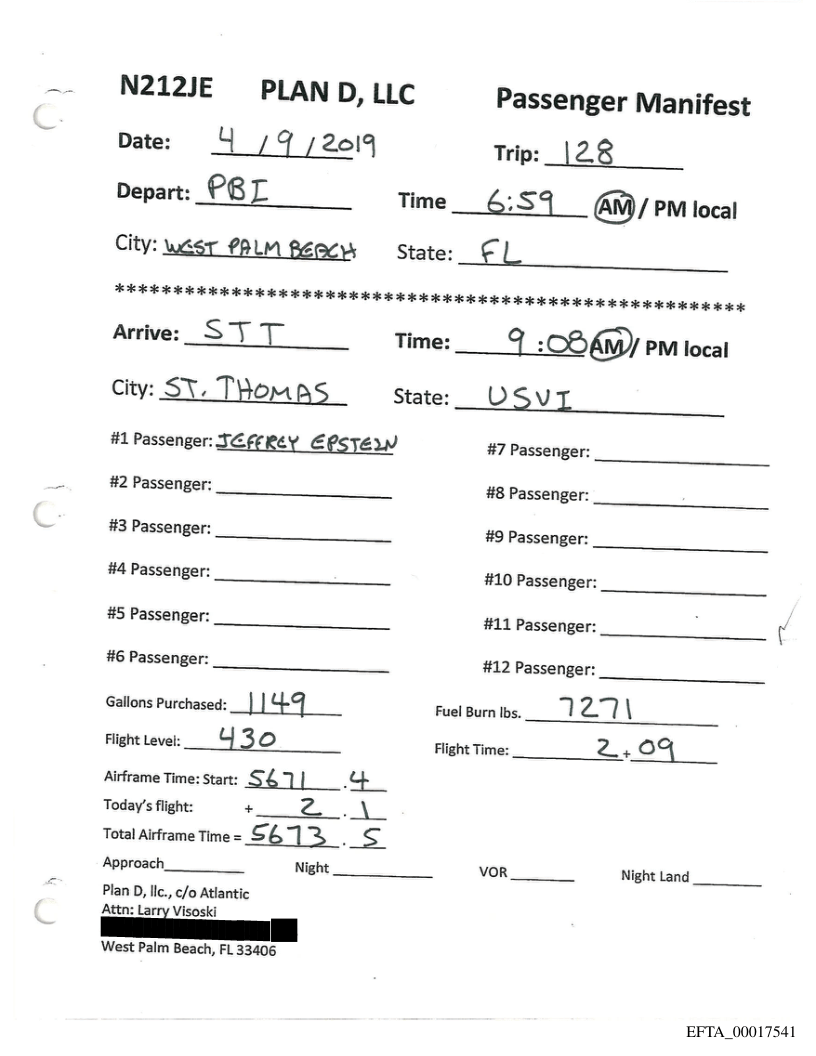 N212JE PLAN D, LLC Passenger Manifest
Date: 4 / 9 / 2019 Trip: 128
Depart: PBI Time 6:59 AM / PM local
City: WEST PALM BEACH State: FL
******************************************************
Arrive: STT Time: 9:08 AM / PM local
City: ST. THOMAS State: USVI
#1 Passenger: JEFFREY EPSTEIN #7 Passenger:
#2 Passenger: #8 Passenger:
#3 Passenger: #9 Passenger:
#4 Passenger: #10 Passenger:
#5 Passenger: #11 Passenger:
#6 Passenger: #12 Passenger:
Gallons Purchased: 1149 Fuel Burn lbs. 7271
Flight Level: 430 Flight Time: 2 + 09
Airframe Time: Start: 5671 . 4
Today's flight: + 2 . 1
Total Airframe Time = 5673 . 5
Approach Night VOR Night Land
Plan D, llc., c/o Atlantic
Attn: Larry Visoski
West Palm Beach, FL 33406
EFTA_00017541